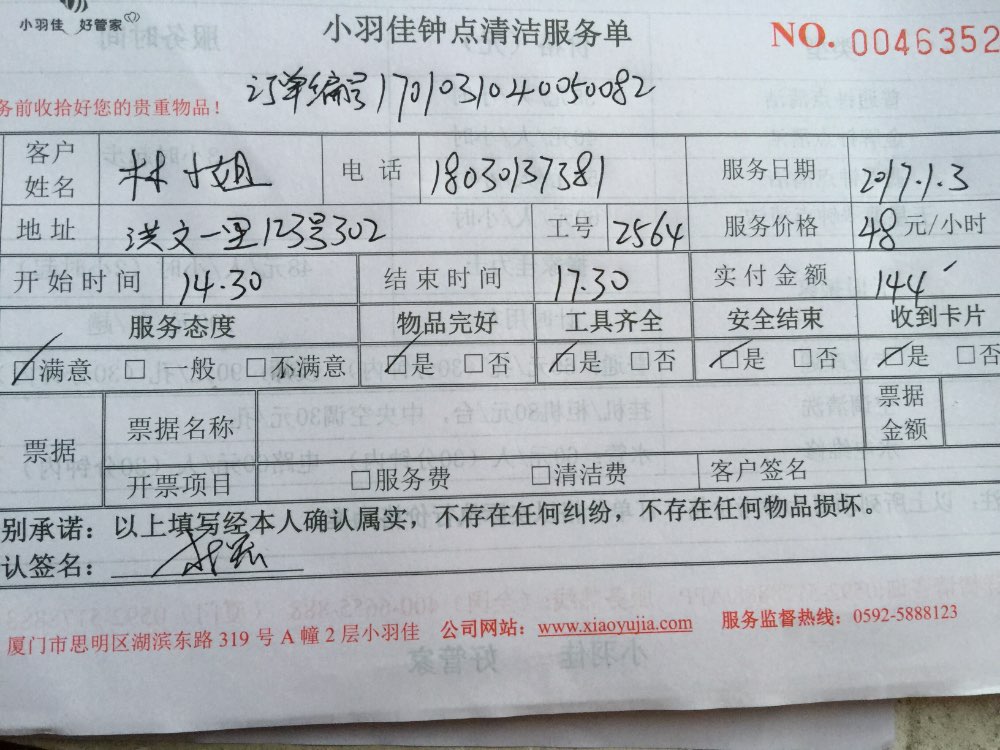 小羽佳 好管家
小羽佳钟点清洁服务单
NO. 0046352
务前收拾好您的贵重物品！
订单编号1701031040050082
客户姓名 林小姐 电话 18030137381 服务日期 2017.1.3
地址 洪文一里123号302 工号 2564 服务价格 48元/小时
开始时间 14.30 结束时间 17.30 实付金额 144
服务态度 物品完好 工具齐全 安全结束 收到卡片
□满意 □一般 □不满意 □是 □否 □是 □否 □是 □否 □是 □否
票据 票据名称 票据金额
开票项目 □服务费 □清洁费 客户签名
别承诺：以上填写经本人确认属实，不存在任何纠纷，不存在任何物品损坏。
认签名：
厦门市思明区湖滨东路 319 号 A 幢 2 层小羽佳 公司网站：www.xiaoyujia.com 服务监督热线：0592-5888123